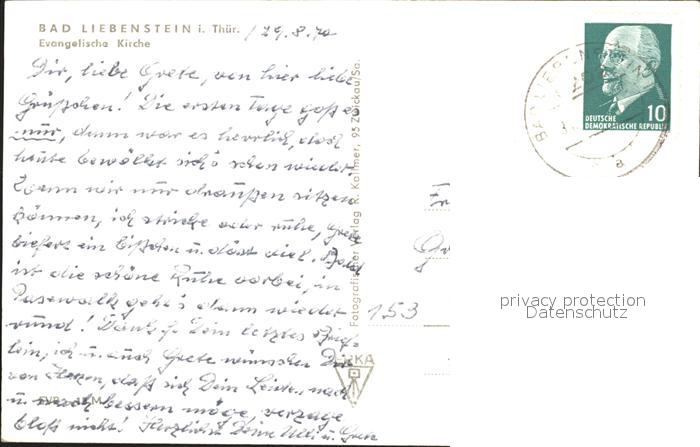 BAD LIEBENSTEIN i. Thür. /29.8.70
Evangelische Kirche
Dir, liebe Grete, von hier liebe
Grüßchen! Die ersten Tage goß es
nur, dann war es herrlich, doch
heute bewölkt sich's schon wieder.
Wenn wir nur draußen sitzen
können, ich stricke oder ruhe, Grete
liefert ein bißchen u. döst viel. Bald
ist die schöne Ruhe vorbei, in
Pasewalk geht's dann wieder
rund! Dank f. Dein letztes Brief-
lein, ich u. auch Grete wünschen Dir
von Herzen, daß sich Dein Leiden nach
u. nach bessern möge, verzage
bloß nicht! Herzlichst Deine u. Grete
Fotografischer Verlag R. Kallmer, 95 Zwickau/Sa.
BAD LIEBENSTEIN
10
DEUTSCHE
DEMOKRATISCHE REPUBLIK
153
privacy protection
Datenschutz